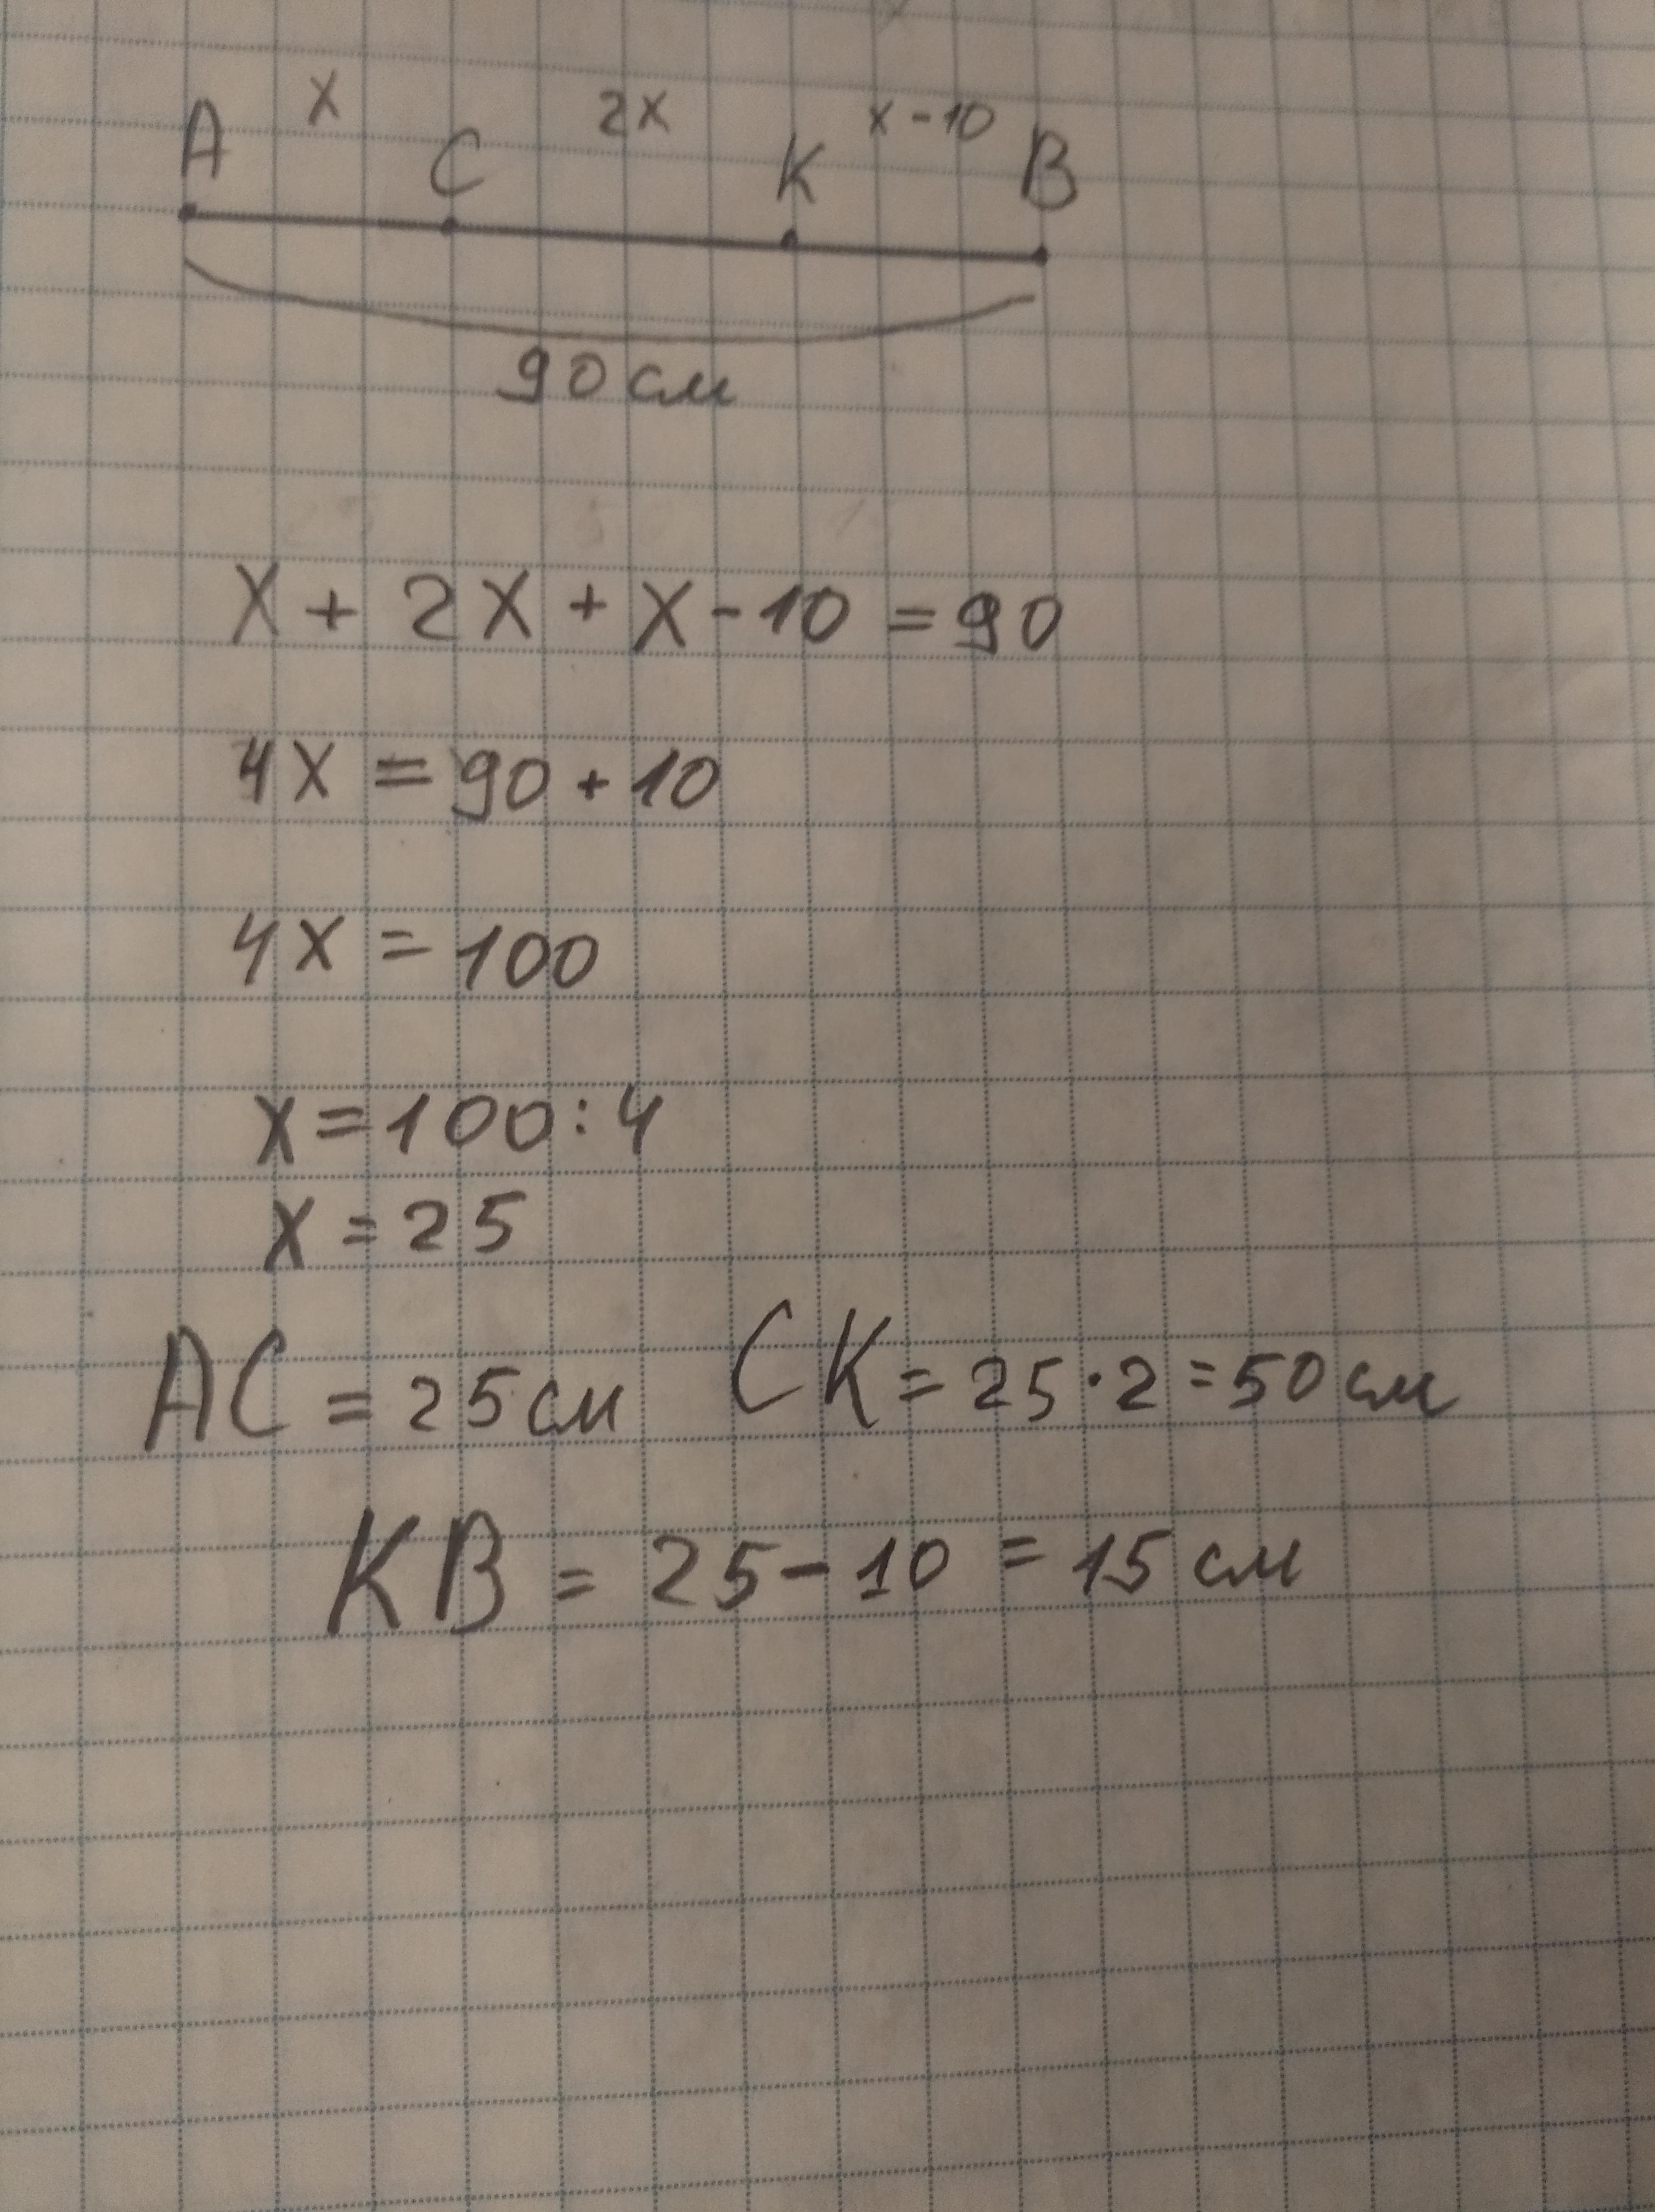 A x C 2x K x-10 B
90 см
x + 2x + x - 10 = 90
4x = 90 + 10
4x = 100
x = 100 : 4
x = 25
AC = 25 см CK = 25 · 2 = 50 см
KB = 25 - 10 = 15 см